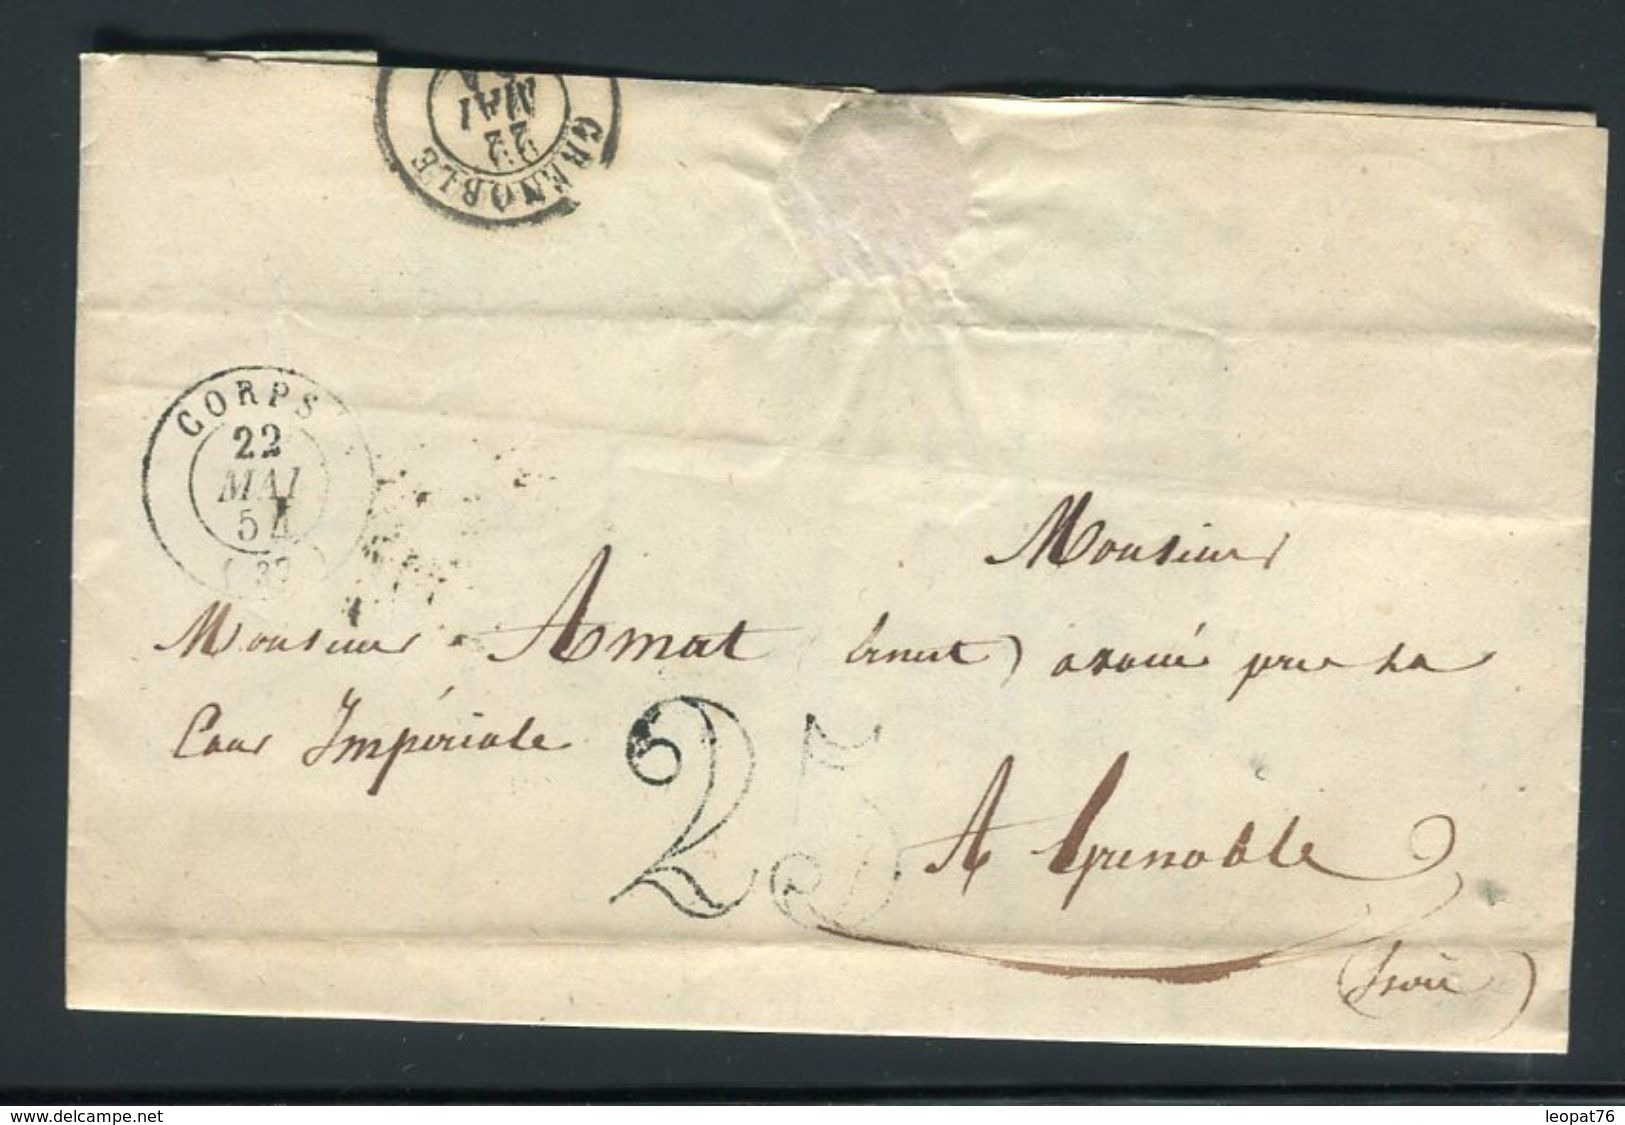 GRENOBLE
22
MAI
CORPS
22
MAI
54
Monsieur
Monsieur Amat (Ernest) avoué près la
Cour Impériale
25
A Grenoble
(Isère)
www.delcampe.net
leopat76